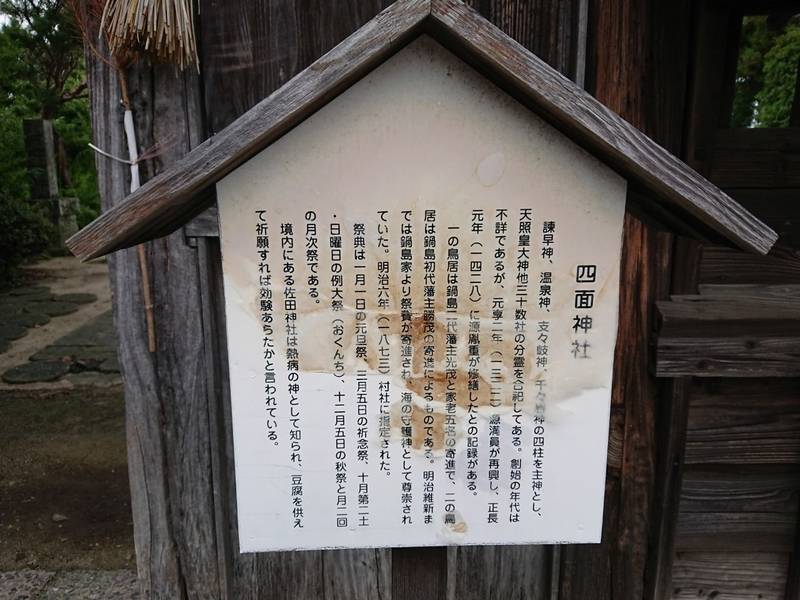 四面神社
諫早神、温泉神、支々岐神、千々岩神の四柱を主神とし、
天照皇大神他三十数社の分霊を合祀してある。創始の年代は
不詳であるが、元享二年(一三二二)源満員が再興し、正長
元年(一四二八)に源胤重が修繕したとの記録がある。
一の鳥居は鍋島二代藩主光茂と家老五名の寄進で、二の鳥
居は鍋島初代藩主勝茂の寄進によるものである。明治維新ま
では鍋島家より祭費が寄進され、海の守護神として尊崇され
ていた。明治六年(一八七三)村社に指定された。
祭典は一月一日の元旦祭、三月五日の祈念祭、十月第二土
・日曜日の例大祭(おくんち)、十二月五日の秋祭と月二回
の月次祭である。
境内にある佐田神社は熱病の神として知られ、豆腐を供え
て祈願すれば効験あらたかと言われている。